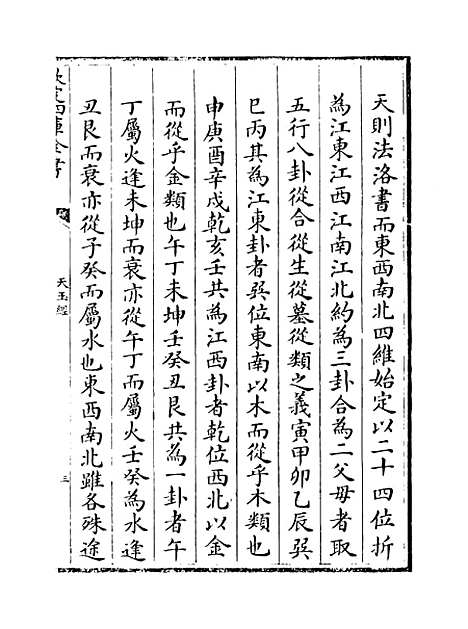 天則法洛書而東西南北四維始定以二十四位折
為江東江西江南江北約為三卦合為二父母者取
五行八卦從合從生從墓從類之義寅甲卯乙辰巽
巳丙其為江東卦者巽位東南以木而從乎木類也
申庚酉辛戌乾亥壬共為江西卦者乾位西北以金
而從乎金類也午丁未坤壬癸丑艮共為一卦者午
丁屬火逢未坤而衰亦從午丁而屬火壬癸為水逢
丑艮而衰亦從子癸而屬水也東西南北雖各殊途
欽定四庫全書
天玉經
三